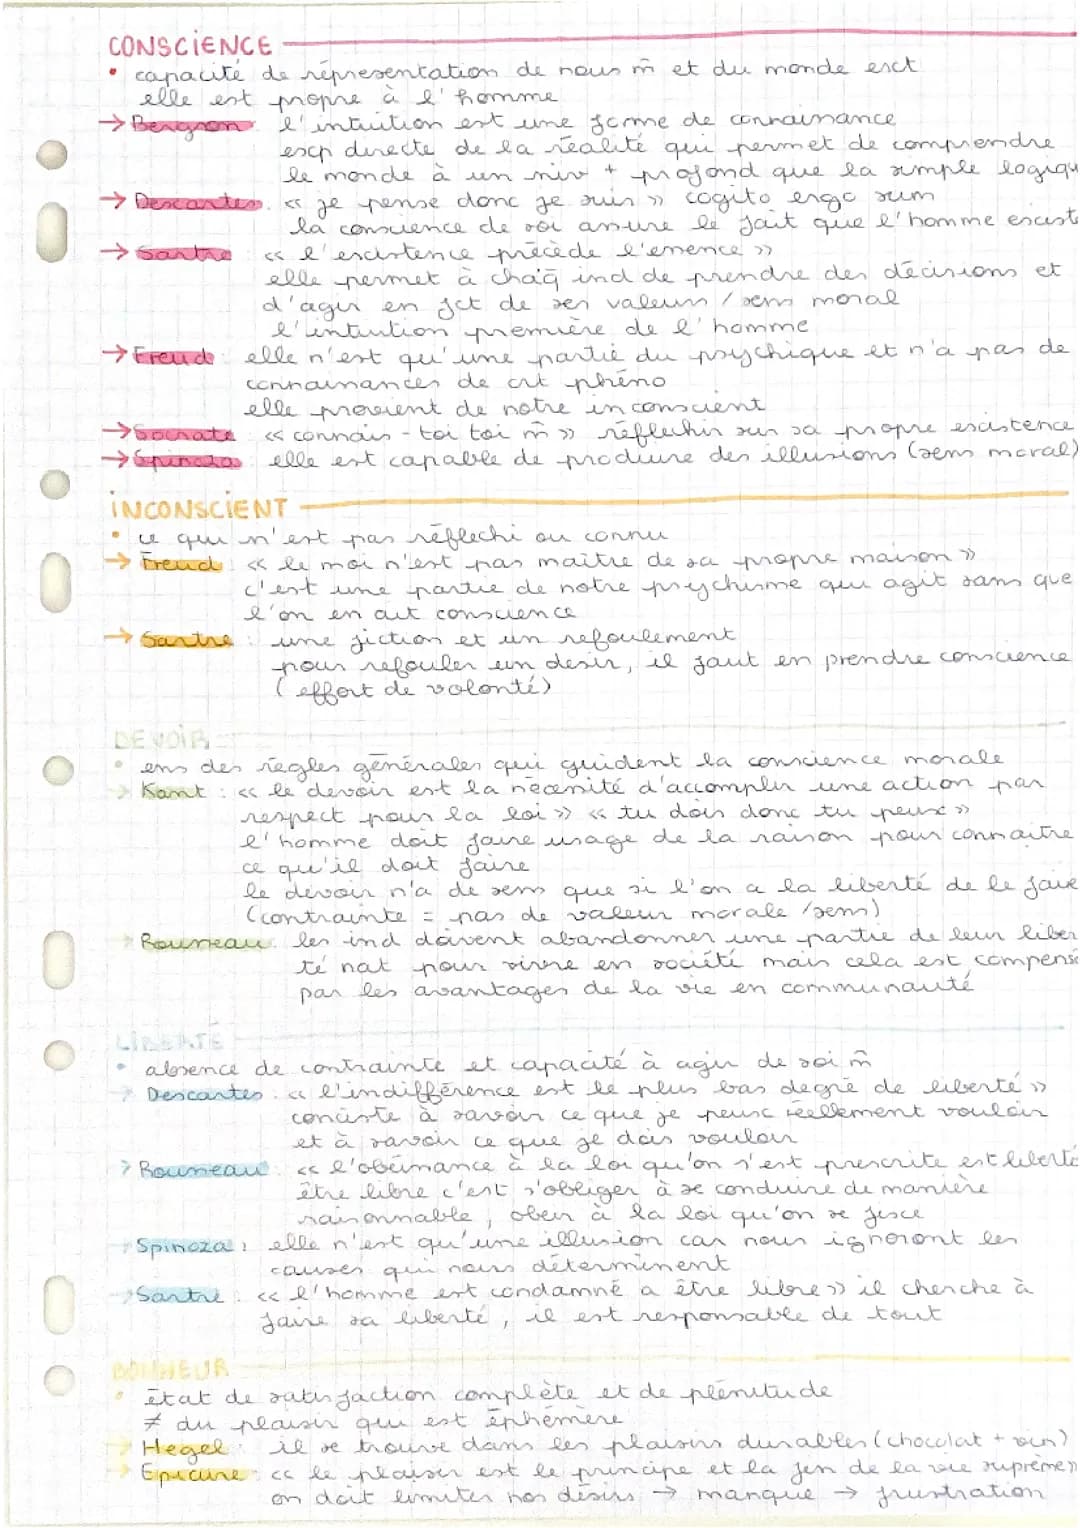 CONSCIENCE
• capacité de répresentation de nous m̄ et du monde ext
elle est propre à l'homme
→ Bergson : l'intuition est une forme de connaissance
exp directe de la réalité qui permet de comprendre
le monde à un niv + profond que la simple logiqu
→ Descartes : « je pense donc je suis » cogito ergo sum
la conscience de soi assure le fait que l'homme existe
→ Sartre : « l'existence précède l'essence »
elle permet à chaq̄ ind de prendre des décisions et
d'agir en fct de ses valeurs / sens moral
l'intuition première de l'homme
→ Freud : elle n'est qu'une partie du psychique et n'a pas de
connaissances de crt phéno
elle provient de notre inconscient
→ Socrate : « connais-toi toi m̄ » réflechir sur sa propre existence
→ Spinoza : elle est capable de produire des illusions (sens moral)
INCONSCIENT
• ce qui n'est pas réflechi ou connu
→ Freud : « le moi n'est pas maître de sa propre maison »
c'est une partie de notre psychisme qui agit sans que
l'on en ait conscience
→ Sartre : une fiction et un refoulement
pour refouler un desir, il faut en prendre conscience
(effort de volonté)
DEVOIR
• ens des règles générales qui guident la conscience morale
→ Kant : « le devoir est la nécessité d'accomplir une action par
respect pour la loi » « tu dois donc tu peux »
l'homme doit faire usage de la raison pour connaitre
ce qu'il doit faire
le devoir n'a de sens que si l'on a la liberté de le faire
(contrainte = pas de valeur morale /sens)
→ Rousseau : les ind doivent abandonner une partie de leur liber
té nat pour vivre en société mais cela est compensé
par les avantages de la vie en communauté
LIBERTÉ
• absence de contrainte et capacité à agir de soi m̄
→ Descartes : « l'indifférence est le plus bas degré de liberté »
consiste à savoir ce que je peux réellement vouloir
et à savoir ce que je dois vouloir
→ Rousseau : « l'obéissance à la loi qu'on s'est prescrite est liberté
être libre c'est s'obliger à se conduire de manière
raisonnable, obeir à la loi qu'on se fixe
→ Spinoza : elle n'est qu'une illusion car nous ignoront les
causes qui nous déterminent
→ Sartre : « l'homme est condamné a être libre » il cherche à
faire sa liberté, il est responsable de tout
BONHEUR
• état de satisfaction complète et de plénitude
≠ du plaisir qui est éphémère
→ Hegel : il se trouve dans les plaisirs durables (chocolat + vin)
→ Epicure : « le plaisir est le principe et la fin de la vie suprême »
on doit limiter nos désirs → manque → frustration